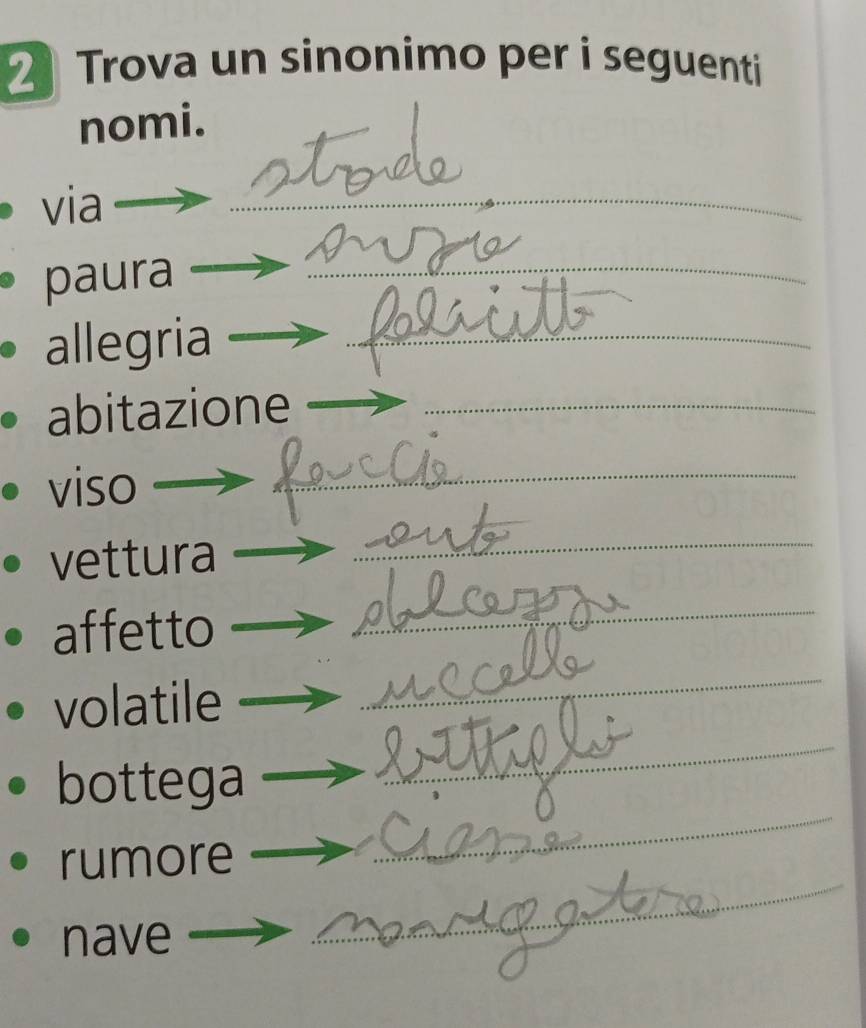 2 Trova un sinonimo per i seguenti
nomi.
• via strada
• paura
• allegria felicità
• abitazione
• viso faccia
• vettura auto
• affetto dolcezza
• volatile uccello
• bottega
• rumore
• nave